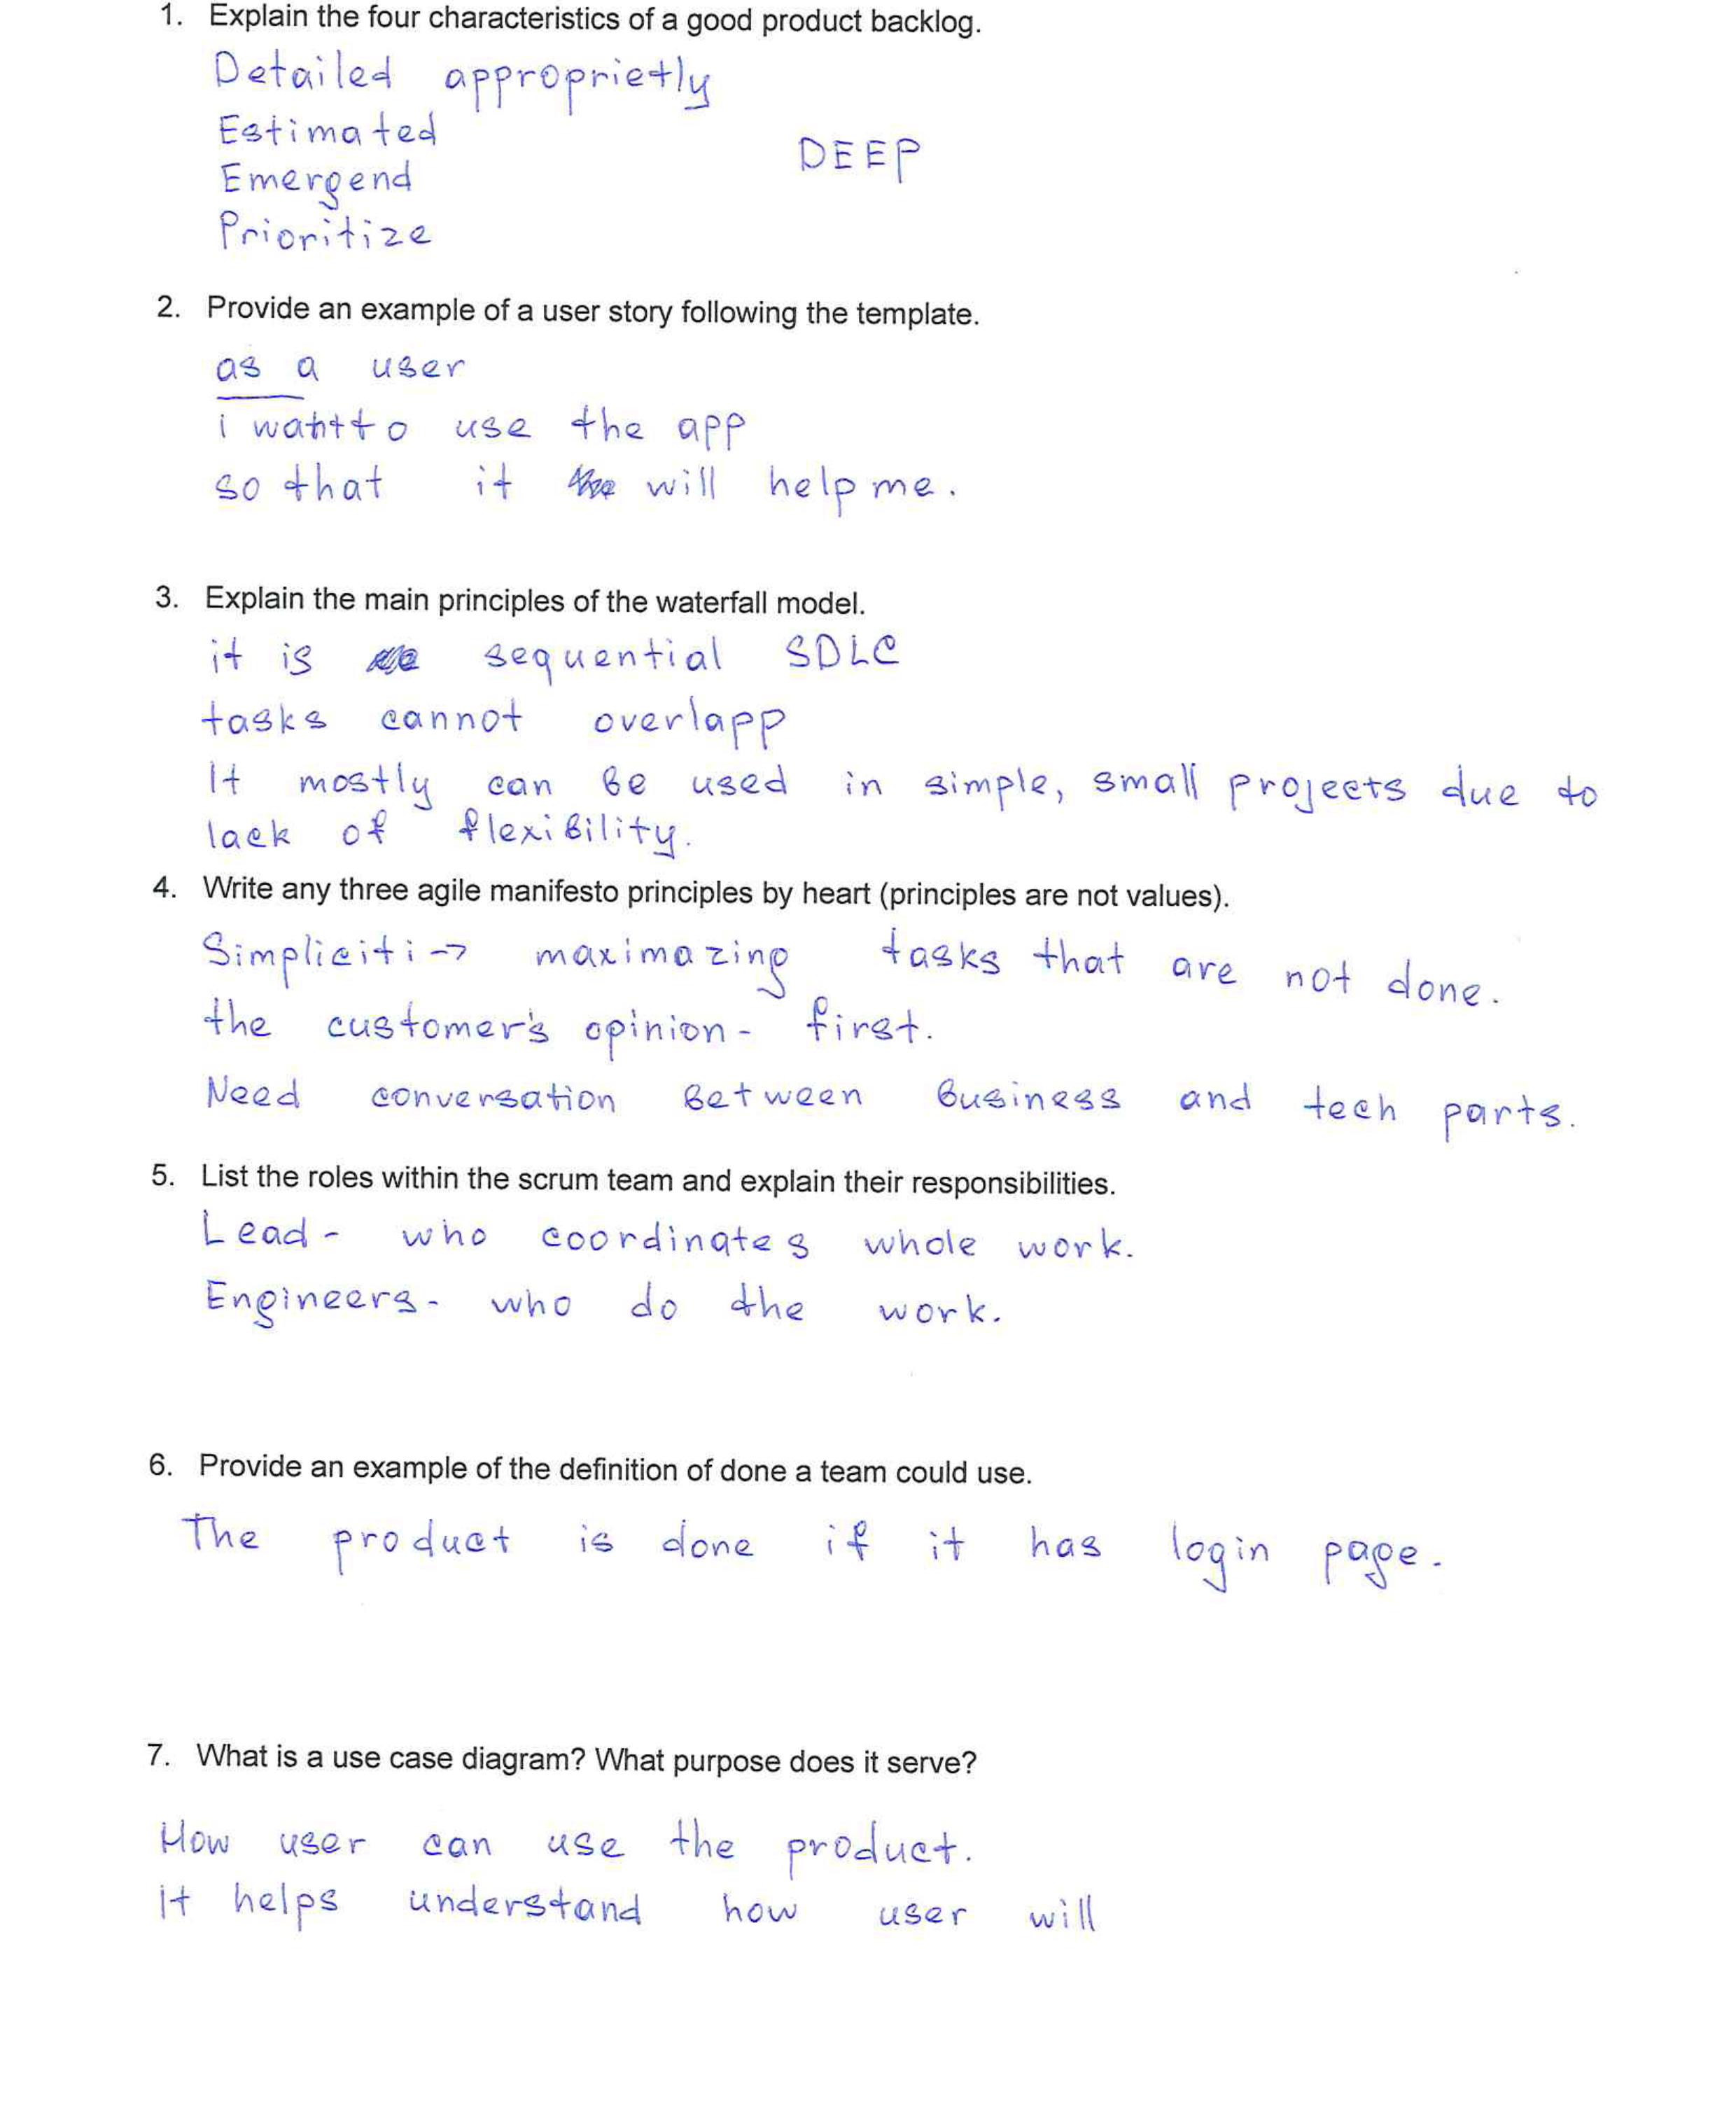 1. Explain the four characteristics of a good product backlog.
Detailed approprietly
Estimated
DEEP
Emergend
Prioritize
2. Provide an example of a user story following the template.
as a user
i want to use the app
so that it will help me.
3. Explain the main principles of the waterfall model.
it is sequential SDLC
tasks cannot overlapp
It mostly can be used in simple, small projects due to
lack of flexibility.
4. Write any three agile manifesto principles by heart (principles are not values).
Simpliciti -> maximazing tasks that are not done.
the customer's opinion - first.
Need conversation between business and tech parts.
5. List the roles within the scrum team and explain their responsibilities.
Lead - who coordinates whole work.
Engineers - who do the work.
6. Provide an example of the definition of done a team could use.
The product is done if it has login page.
7. What is a use case diagram? What purpose does it serve?
How user can use the product.
It helps understand how user will